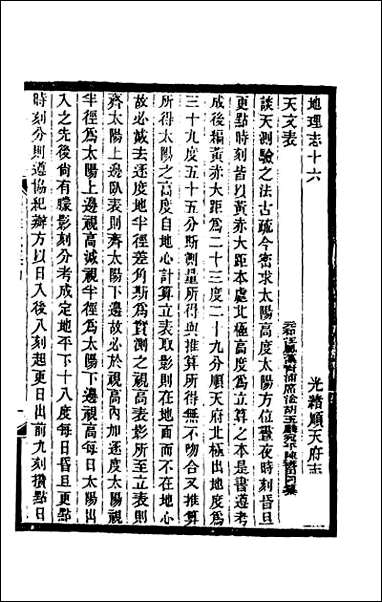 地理志十六
光緒順天府志
天文表
談天測驗之法古疏今密求太陽高度太陽方位晝夜時刻昏旦
更點時刻皆以黃赤大距本處北極高度為立算之本是書遵考
成後編黃赤大距為二十三度二十九分順天府北極出地度為
三十九度五十五分斯測量所得與推算所得無不吻合又推算
所得太陽之高度自地心計算立表取影則在地面而不在地心
故必減去逐度地半徑差角斯為實測之視高表影所至立表則
齊太陽上邊臥表則齊太陽下邊故必於視高內加逐度太陽視
半徑為太陽上邊視高減視半徑為太陽下邊視高每日太陽出
入之先後尚有矇影刻分考成定地平下十八度每日昏旦更點
時刻分則遵協紀辦方以日入後八刻起更日出前九刻攢點日